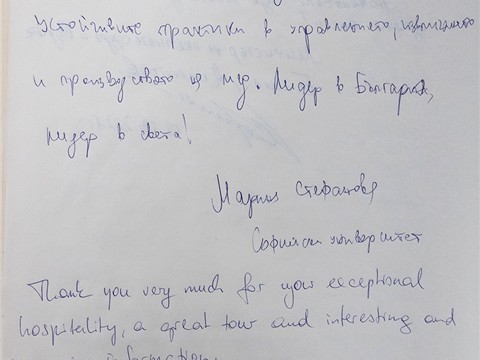 устойчивите практики в управлението, извличането
и производството на мед. Лидер в България,
лидер в света!
Мария Стефанова
Софийски университет
Thank you very much for your exceptional
hospitality, a great tour and interesting and
information